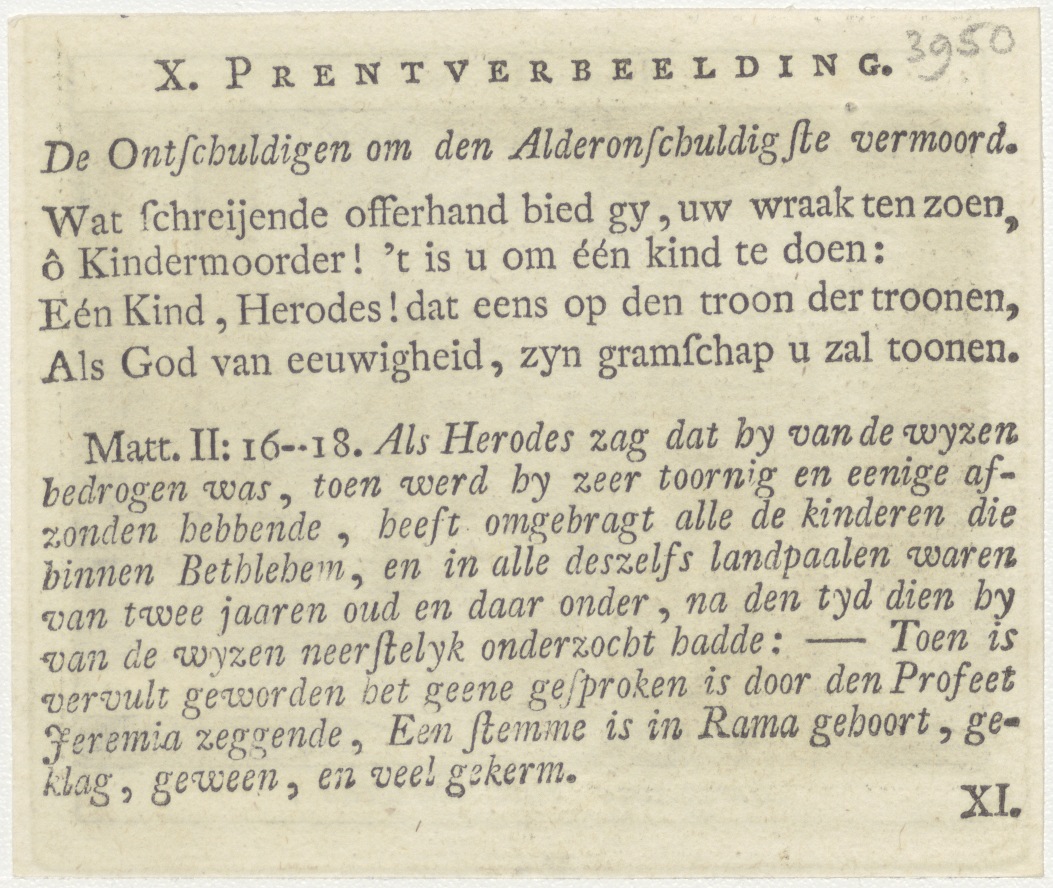 3950
X. PRENTVERBEELDING.
De Ontſchuldigen om den Alderonſchuldigſte vermoord.
Wat ſchreijende offerhand bied gy, uw wraak ten zoen,
ô Kindermoorder! 't is u om één kind te doen:
Eén Kind, Herodes! dat eens op den troon der troonen,
Als God van eeuwigheid, zyn gramſchap u zal toonen.
Matt. II: 16--18. Als Herodes zag dat hy van de wyzen
bedrogen was, toen werd hy zeer toornig en eenige af-
zonden hebbende, heeft omgebragt alle de kinderen die
binnen Bethlehem, en in alle deszelfs landpaalen waren
van twee jaaren oud en daar onder, na den tyd dien hy
van de wyzen neerſtelyk onderzocht hadde: — Toen is
vervult geworden het geene geſproken is door den Profeet
Jeremia zeggende, Een ſtemme is in Rama gehoort, ge-
klag, geween, en veel gekerm.
XI.